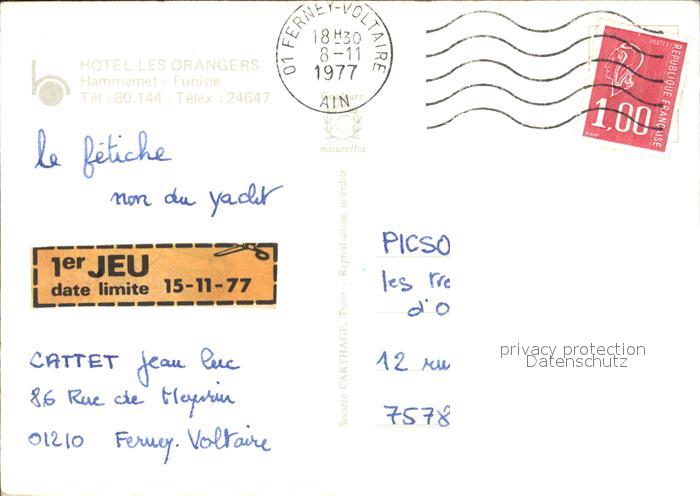 HOTEL LES ORANGERS
Hammamet - Tunisie
Tél : 80.144 - Télex : 24647
01 FERNEY-VOLTAIRE
18H30
8-11
1977
AIN
POSTES
REPUBLIQUE FRANÇAISE
1,00
Couleurs
naturelles
le fétiche
non du yacht
1er JEU
date limite 15-11-77
CATTET Jean Luc
86 Rue de Meyrin
01210 Ferney-Voltaire
Société CARTHAGE, Tunis - Reproduction interdite
PICSO
les tre
d'O
12 ru
7578
privacy protection
Datenschutz